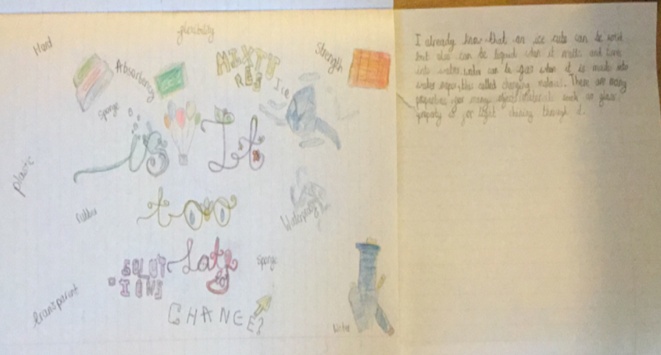 Hard
flexibility
MIXTURES
Strength
Absorbancy
Ice
Sponge
is It
plastic
too
rubber
Waterproof
SOLUTIONS
Late
Sponge
transparent
CHANGE?
write
I already know that an ice cube can be solid
but also can be liquid when it melts and turns
into water water can be gas when it is made into
water vapour this called changing material. There are many
properties for many material such as glass
property is for light shining through it.